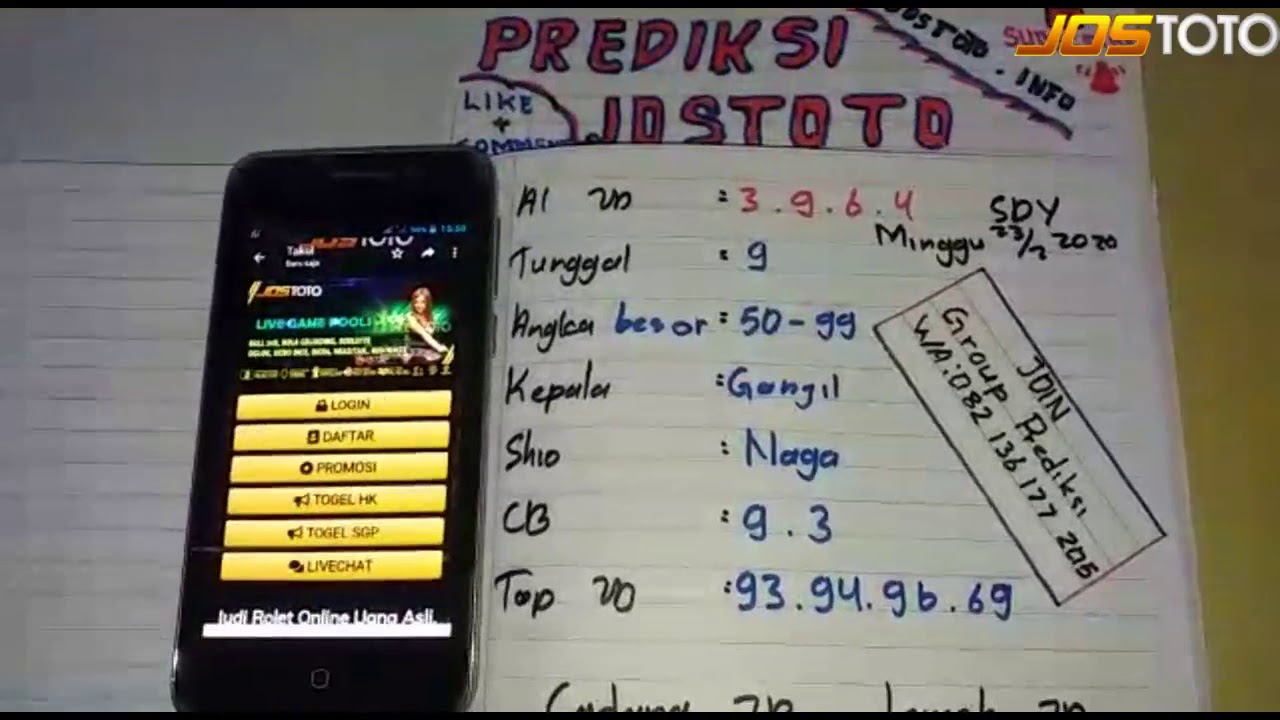 JOSTOTO
PREDIKSI
JOSTOTO
LIKE
+
JOSTOTO . INFO
AI 2D : 3.9.6.4
SDY
Minggu 23/2 2020
Tunggal : 9
Angka besar : 50-99
Kepala : Gangil
Shio : Naga
CB : 9.3
Top 2D : 93.94.96.69
JOIN
Group Prediksi
WA:082 136 177 2015
JOSTOTO
LIVE GAME POOL
LOGIN
DAFTAR
PROMOSI
TOGEL HK
TOGEL SGP
LIVECHAT
Judi Rolet Online Uang Asli...